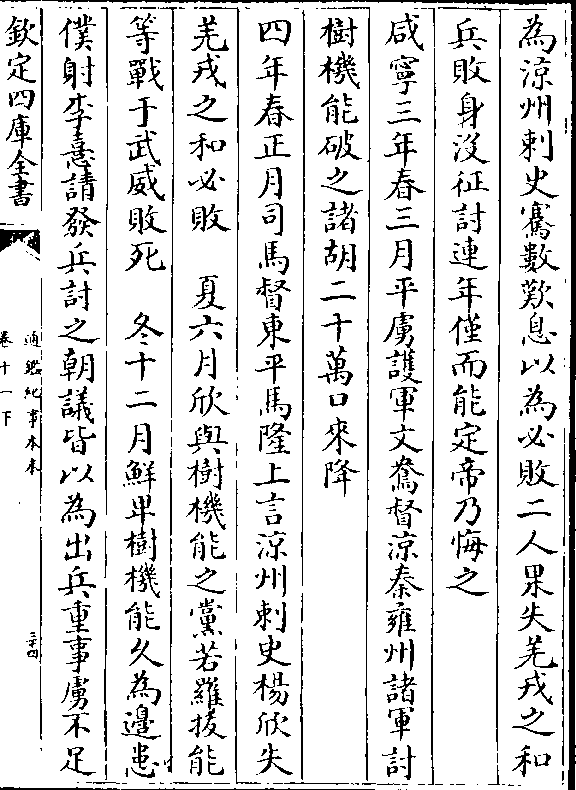 為涼州刺史騫數歎息以為必敗二人果失羌戎之和
兵敗身沒征討連年僅而能定帝乃悔之
咸寧三年春三月平虜護軍文鴦督涼秦雍州諸軍討
樹機能破之諸胡二十萬口來降
四年春正月司馬督東平馬隆上言涼州刺史楊欣失
羌戎之和必敗　夏六月欣與樹機能之黨若羅拔能
等戰于武威敗死　冬十二月鮮卑樹機能久為邊患
僕射李憙請發兵討之朝議皆以為出兵重事虜不足
欽定四庫全書
通鑑紀事本末
卷十一下
三十四